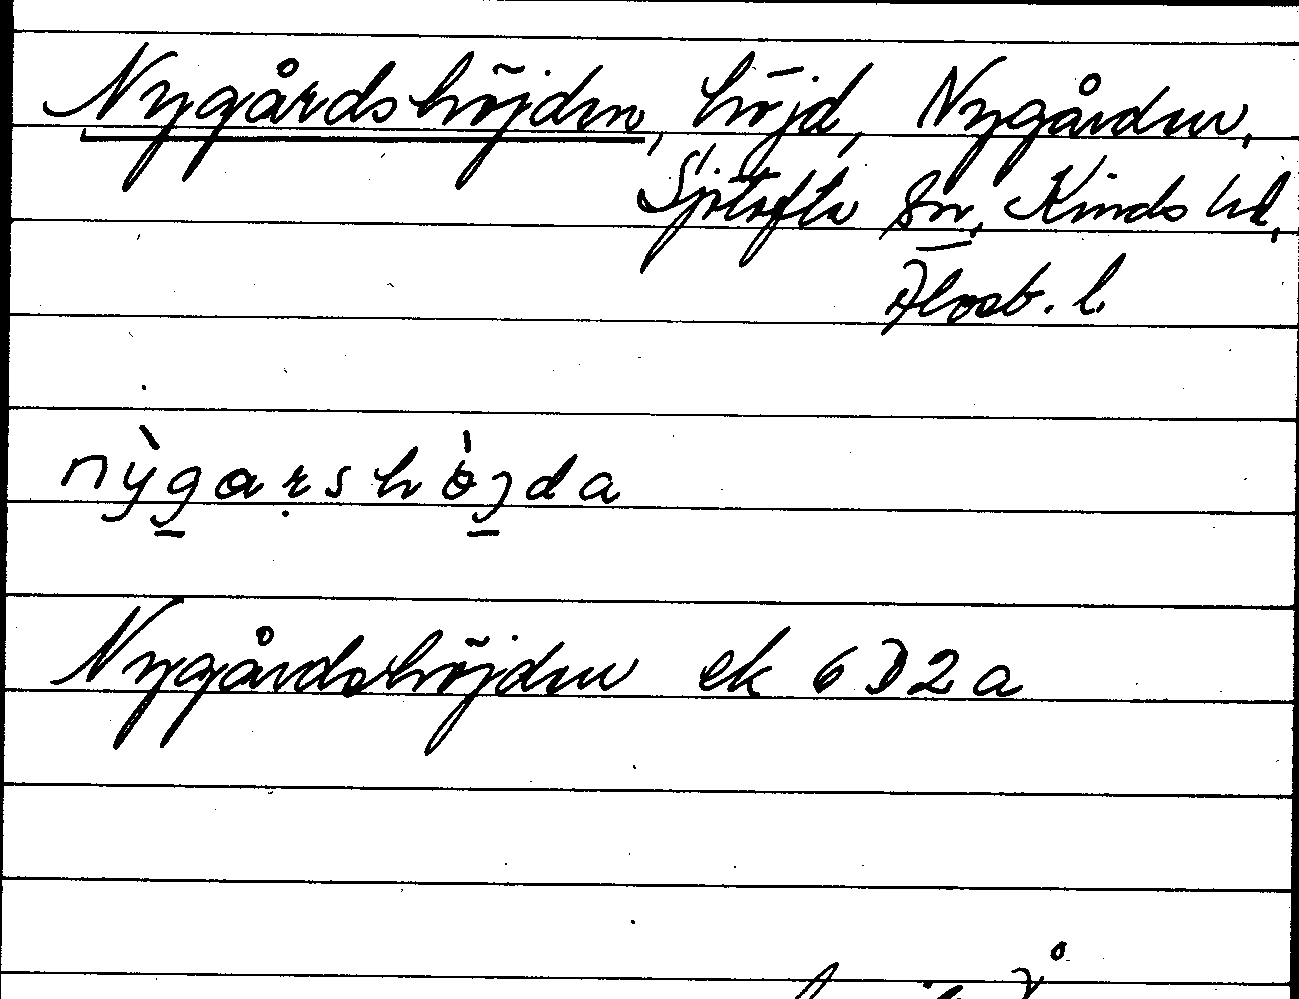 Nygårdshöjden, höjd, Nygården,
Sjötofta sn, Kinds hd,
Älvsb. l.
nỳgarshòjda
Nygårdshöjden ek 6D2a